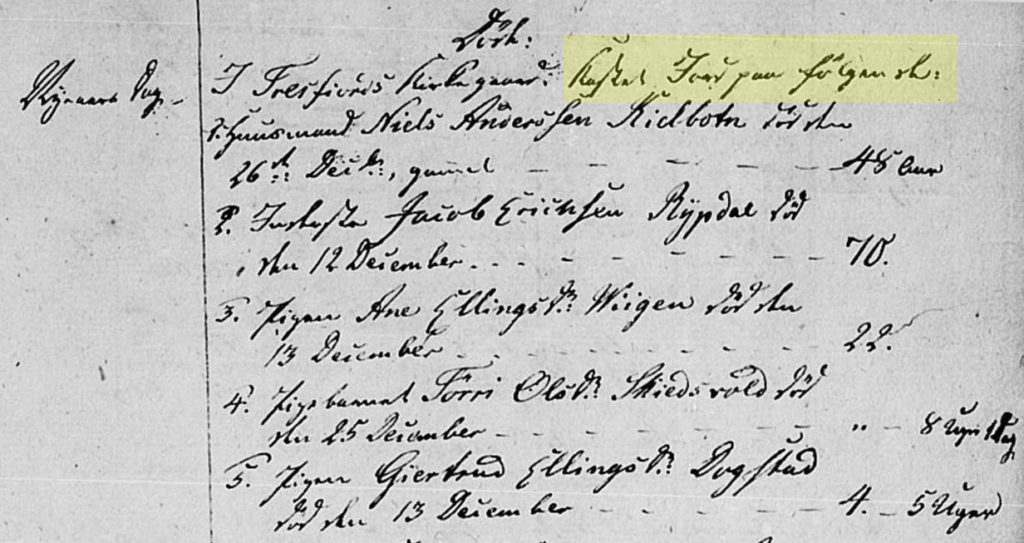 Död:
Nÿeaars Dag
I Tresfiords Kirkegaard. Kastet Jord paa følgende:
1. Huusmand Niels Anderssen Kidlbotn död den
26de Decbr:, gammel 48 Aar
2. Inderste Jacob Erichsen Rÿpdal död
den 12 December 70.
3. Pigen Ane Ellingsdr: Wiigen död den
13 December 22.
4. Pigebarnet Törri Olsdr: Skiedsvold död
den 25 December " 8 Uger 1 Dag
5. Pigen Giertrud Ellingsdr: Dogstad
död den 13 December 4. 5 Uger